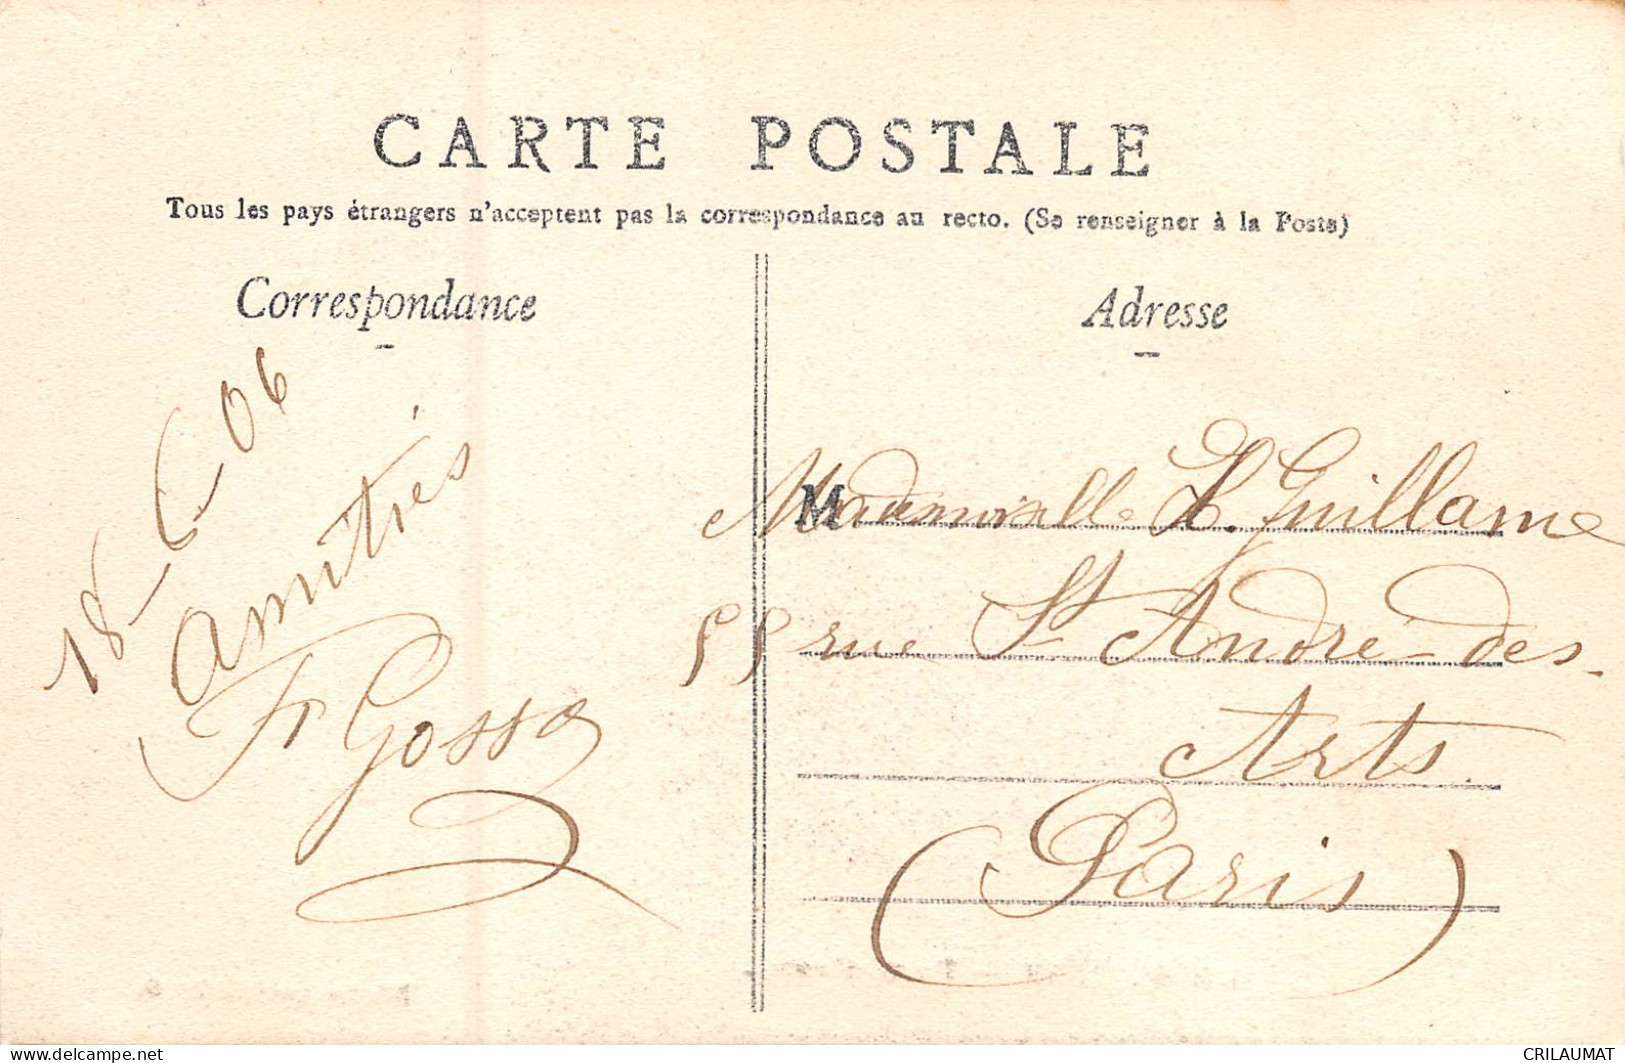 CARTE POSTALE
Tous les pays étrangers n'acceptent pas la correspondance au recto. (Se renseigner à la Poste)
Correspondance
18-6-06
amitiés
Fr Gosse
Adresse
Mademoiselle L. Guillame
55 rue St André-des-
Arts.
(Paris)
www.delcampe.net
CRILAUMAT